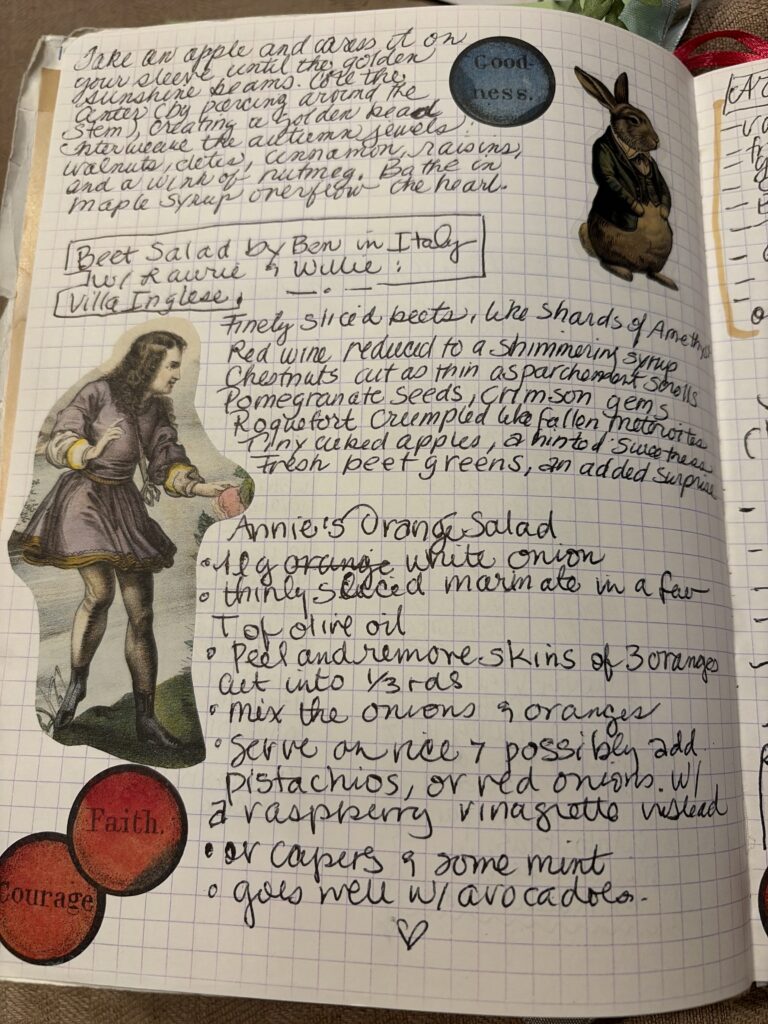 Take an apple and caress it on
your sleeve until the golden
sunshine beams. Core the
center (by piercing around the
stem), creating a golden bead
interweave the autumn jewels:
walnuts, dates, cinnamon, raisins,
and a wink of nutmeg. Bathe in
maple syrup overflow the heart.
Good-
ness.
Beet Salad by Ben in Italy
w/ Laurie & Willie:
Villa Inglese.
Finely sliced beets, like shards of Amethyst
Red wine reduced to a shimmering syrup
Chestnuts cut as thin as parchment scrolls
Pomegranate seeds, crimson gems
Roquefort crumpled like fallen meteorites
Tiny cubed apples, a hint of sweetness
Fresh beet greens, an added surprise
Annie's Orange Salad
• 1 lg orange white onion
• thinly sliced marinate in a few
T of olive oil
• Peel and remove skins of 3 oranges
cut into 1/3 rds
• mix the onions & oranges
• serve on rice & possibly add
pistachios, or red onions. w/
a raspberry vinagrette instead
• or capers & some mint
• goes well w/ avocadoes.
Faith.
Courage